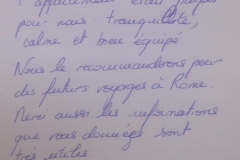 l'appartement était parfait
pour nous : tranquillité,
calme et bien équipé
Nous le recommanderons pour
des futurs voyages à Rome.
Merci aussi les informations
que vous données sont
très utiles.